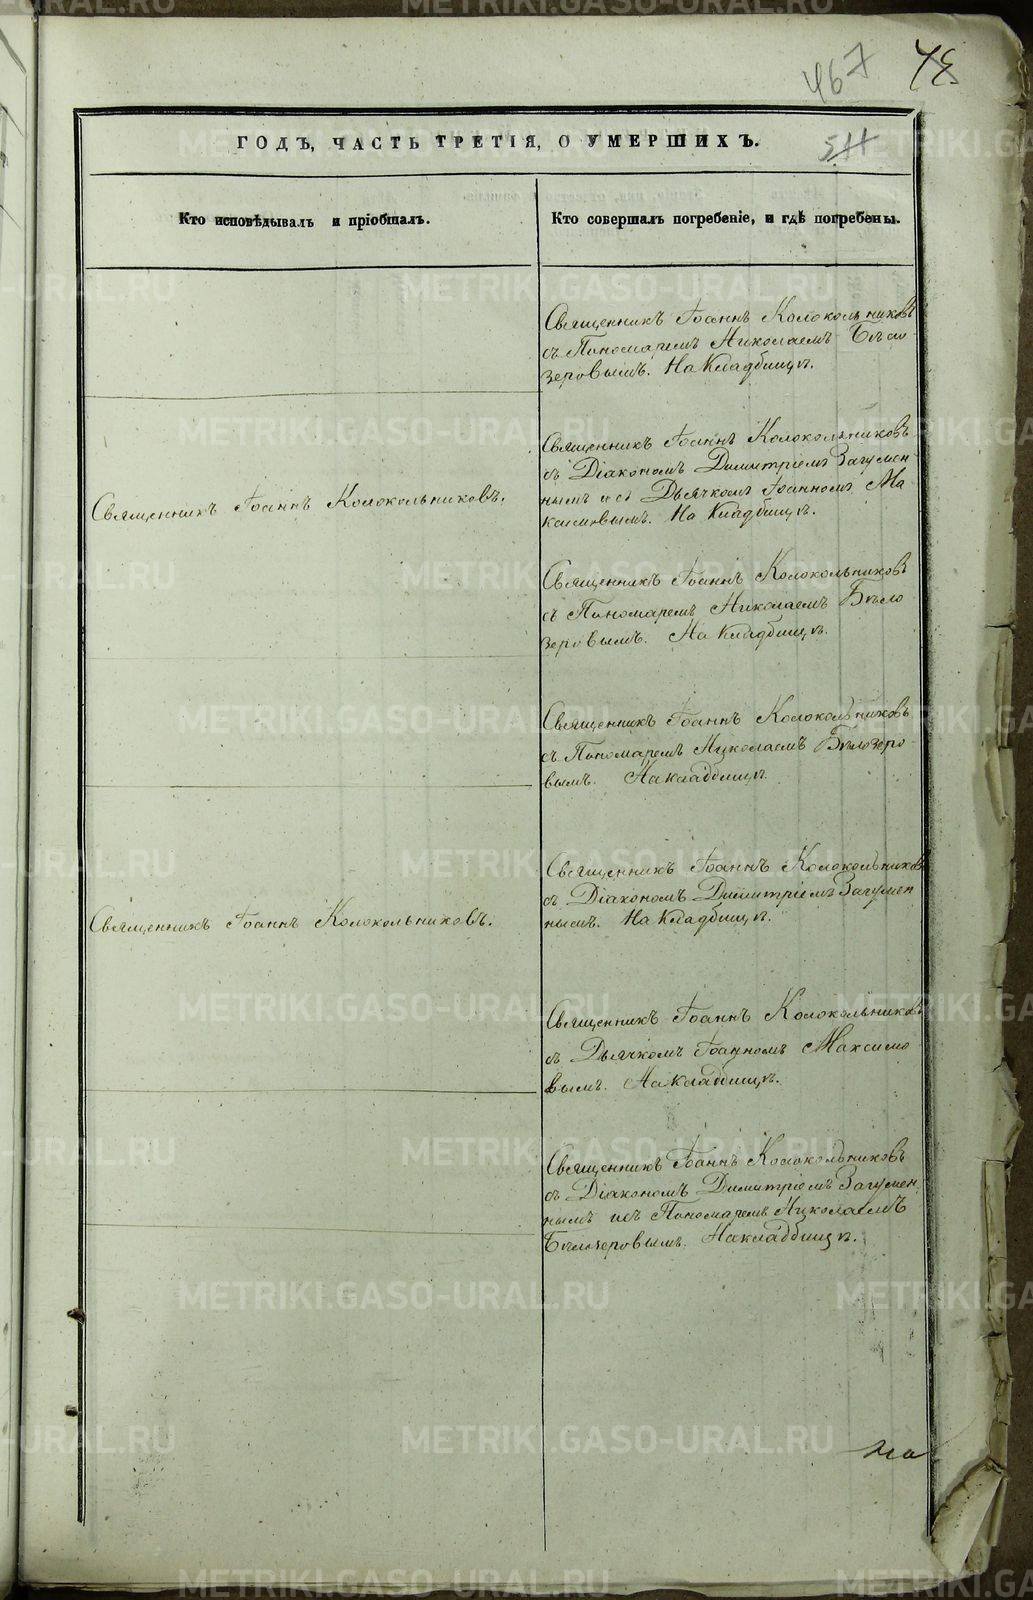 467
511
ГОДЪ, ЧАСТЬ ТРЕТІЯ, О УМЕРШИХЪ.
Кто исповѣдывалъ и пріобщалъ.
Кто совершалъ погребеніе, и гдѣ погребены.
Священникъ Іоаннъ Колокольниковъ
съ Пономаремъ Николаемъ Бѣло
зеровымъ. На Кладбищѣ.
Священникъ Іоаннъ Колокольниковъ.
Священникъ Іоаннъ Колокольниковъ
съ Діакономъ Димитріемъ Загумен
нымъ и съ Дьячкомъ Іоанномъ Ма
ксимовымъ. На Кладбищѣ.
Священникъ Іоаннъ Колокольниковъ
съ Пономаремъ Николаемъ Бѣло
зеровымъ. На Кладбищѣ.
Священникъ Іоаннъ Колокольниковъ
съ Пономаремъ Николаемъ Бѣлозеро-
вымъ. На кладбищѣ.
Священникъ Іоаннъ Колокольниковъ.
Священникъ Іоаннъ Колокольниковъ
съ Діакономъ Димитріемъ Загумен
нымъ. На Кладбищѣ.
Священникъ Іоаннъ Колокольниковъ
съ Дьячкомъ Іоанномъ Максимо
вымъ. На кладбищѣ.
Священникъ Іоаннъ Колокольниковъ
съ Діакономъ Димитріемъ Загумен
нымъ и съ Пономаремъ Николаемъ
Бѣлозеровымъ. На кладбищѣ.
METRIKI.GASO-URAL.RU